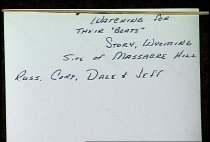 WATCHING FOR
THEIR "BOATS"
STORY, WYOMING
SITE OF MASSACRE HILL
RUSS, CORY, DALE & JEFF